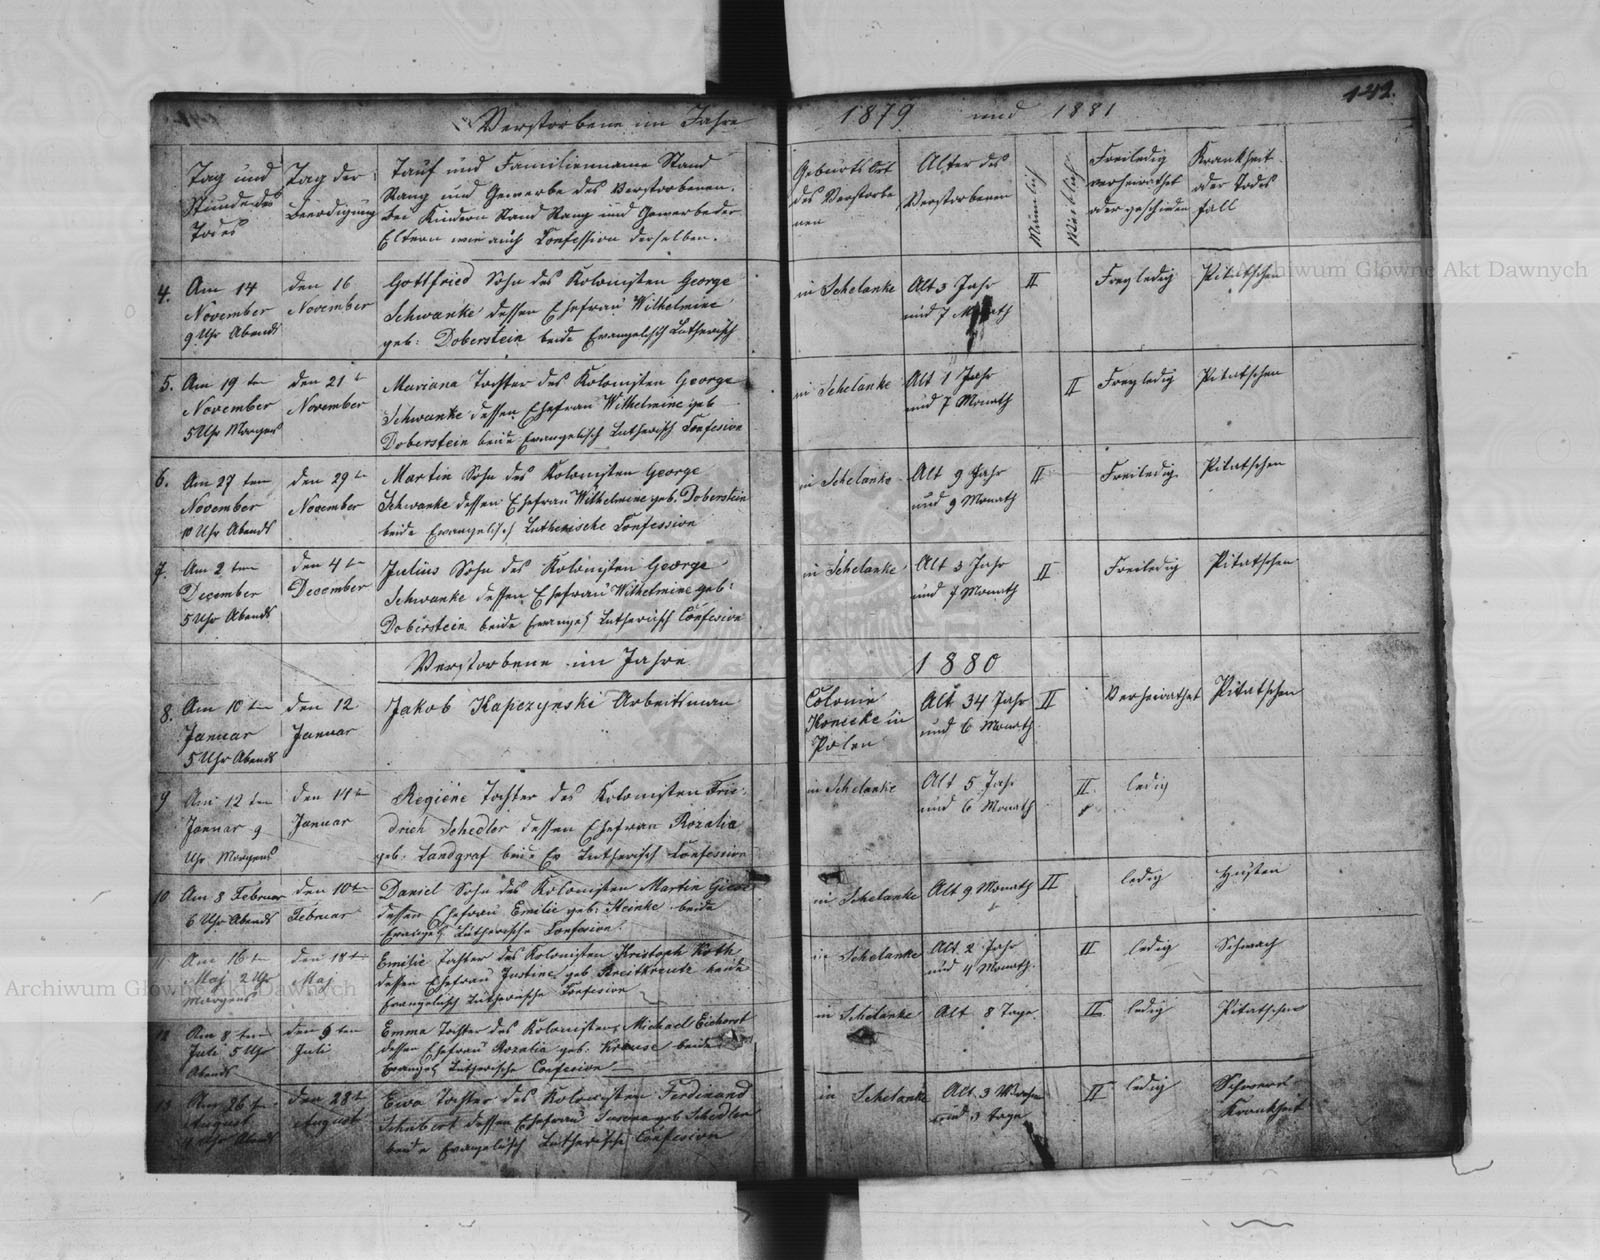 142.
Verstorbene im Jahre 1879 und 1881
Tag und
Stunde des
Todes
Tag der
Beerdigung
Tauf und Familienname Stand
Rang und Gewerbe des Verstorbenen.
Bei Kindern Stand Rang und Gewerbe der
Eltern wie auch Confession derselben.
Geburts Ort
des Verstorbe
nen
Alter des
Verstorbenen
Männlich
Weiblich
Freiledig
verheirathet
oder geschieden
Krankheit
oder Todes
fall
4.
Am 14
November
9 Uhr Abends
den 16
November
Gottfried Sohn des Kolonisten George
Schwanke dessen Ehefrau Wilhelmine
geb: Doberstein beide Evangelisch Lutherisch
in Schelanke
Alt 3 Jahr
und 7 Monath
II
Frey ledig
Pitatschen
5.
Am 19 ten
November
5 Uhr Morgens
den 21 t
November
Mariana Tochter des Kolonisten George
Schwanke dessen Ehefrau Wilhelmine geb
Doberstein beide Evangelisch Lutherisch Confesion
in Schelanke
Alt 1 Jahr
und 7 Monath
II
Freyledig
Pitatschen
6.
Am 27 ten
November
10 Uhr Abends
den 29 t
November
Martin Sohn des Kolonisten George
Schwanke dessen Ehefrau Wilhelmine geb. Doberstein
beide Evangelisch Lutherische Confession
in Schelanke
Alt 9 Jahr
und 9 Monath
II
Freiledig
Pitatschen
7.
Am 2 ten
December
5 Uhr Abends
den 4 t
December
Julius Sohn des Kolonisten George
Schwanke dessen Ehefrau Wilhelmine geb:
Doberstein beide Evangel Lutherisch Confesion
in Schelanke
Alt 3 Jahr
und 7 Monath
II
Freiledig
Pitatschen
Verstorbene im Jahre 1880
8.
Am 10 ten
Januar
5 Uhr Abends
den 12
Januar
Jakob Kapczynski Arbeitsman
Colonie
in
Polen
Alt 34 Jahr
und 6 Monath
II
Verheirathet
Pitatschen
9
Am 12 ten
Januar 9
Uhr Morgens
den 14 t
Januar
Regiene Tochter des Kolonisten Frie-
drich Schedler dessen Ehefrau Rozalia
geb: Landgraf beide Ev Lutherisch Confession
in Schelanke
Alt 5 Jahr
und 6 Monath
II
ledig
10
Am 8 Februar
6 Uhr Abends
den 10 ten
Februar
Daniel Sohn des Kolonisten Martin Giese
dessen Ehefrau Emilie geb: Heinke beide
Evangel Lutherische Confesion.
in Schelanke
Alt 9 Monath
II
ledig
Husten
11
Am 16 t
Maj 2 Uhr
Morgens
den 18 t
Maj
Emilie Tochter des Kolonisten Kristoph Roth
dessen Ehefrau Justine geb Breitkreutz beide
Evangelisch Lutherische Confesion
in Schelanke
Alt 2 Jahr
und 4 Monath.
II
ledig
Schwach
12
Am 8 ten
Juli 5 Uhr
Abends
den 9 ten
Juli
Emma Tochter des Kolonisten Michael Eichorst
dessen Ehefrau Rozalia geb: Krause beide
Evangel Lutherische Confesion
in Schelanke
Alt 8 Tage.
II
ledig
Pitatschen
13
Am 26 t
August
Uhr Abends
den 28 t
August
Ewa Tochter des Kolonisten Ferdinand
Schubert dessen Ehefrau geb Schedler
beide Evangelisch Lutherische Confesion
in Schelanke
Alt 3 Wochen
und 3 tage
II
ledig
Schwere
Krankheit
Archiwum Główne Akt Dawnych
Archiwum Główne Akt Dawnych